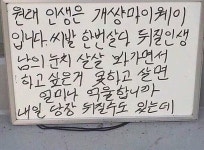 원래 인생은 개썅마이웨이
입니다. 씨발 한번살다 뒤질인생
남의 눈치 살살 봐가면서
하고싶은거 못하고 살면
얼마나 억울합니까
내일 당장 뒤질수도 있는데